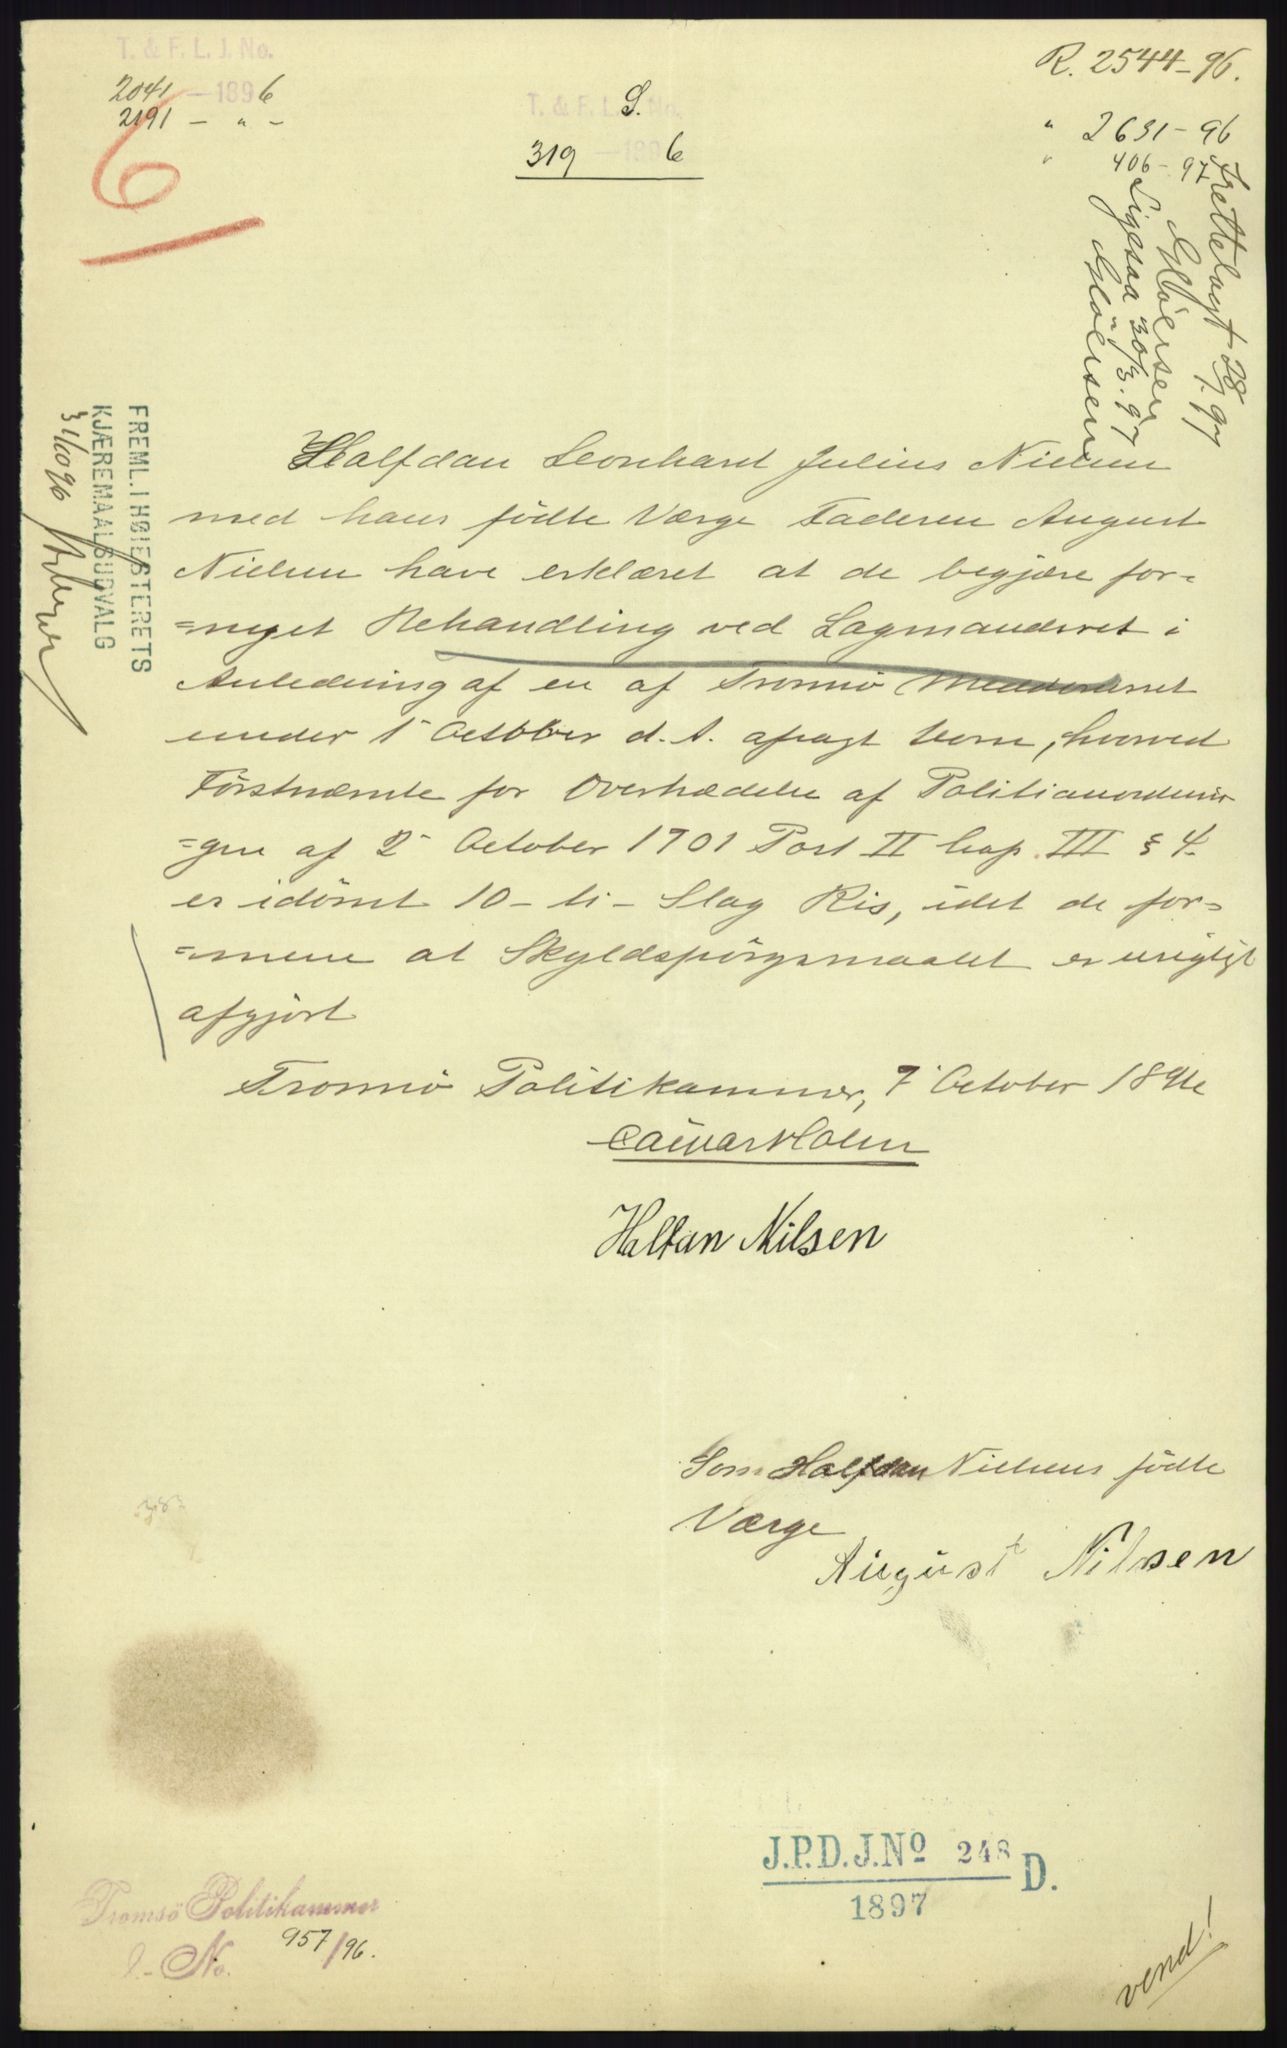 T. & F. L. J. No.
2041 — 1896
2191 — " —
6
S.
T. & F. L. J. No.
319 — 1896
R. 2544-96.
" 2631-96
" 406-97
Fremlagt 28/1 97
Ligesaa 30/3.97
FREML. I HØIESTERETS
KJÆREMAALSUDVALG
31/10 96
Halfdan Leonhard Julius Nielsen
med hans fødte Værge Faderen August
Nielsen have erklæret at de begjære for-
=nyet Behandling ved Lagmandsret i
Anledning af en af Tromsø Meddomsret
under 1ᵉ October d. A. afsagt Dom, hvorved
Førstnævnte for Overtrædelse af Politianordnin
=gen af 2ᵉ October 1701 Post II Cap. III § 4
er idømt 10 - ti - Slag Ris, idet de for=
=mene at Skyldspørgsmaalet er urigtigt
afgjort
Tromsø Politikammer, 7 October 1896
Holm
Halfan Nilsen
Som Halfdan Nielsens fødte
Værge
August Nilsen
J.P.D.J.Nº 248 D.
1897
Tromsö Politikammer
J.-No. 957/96.
vend!